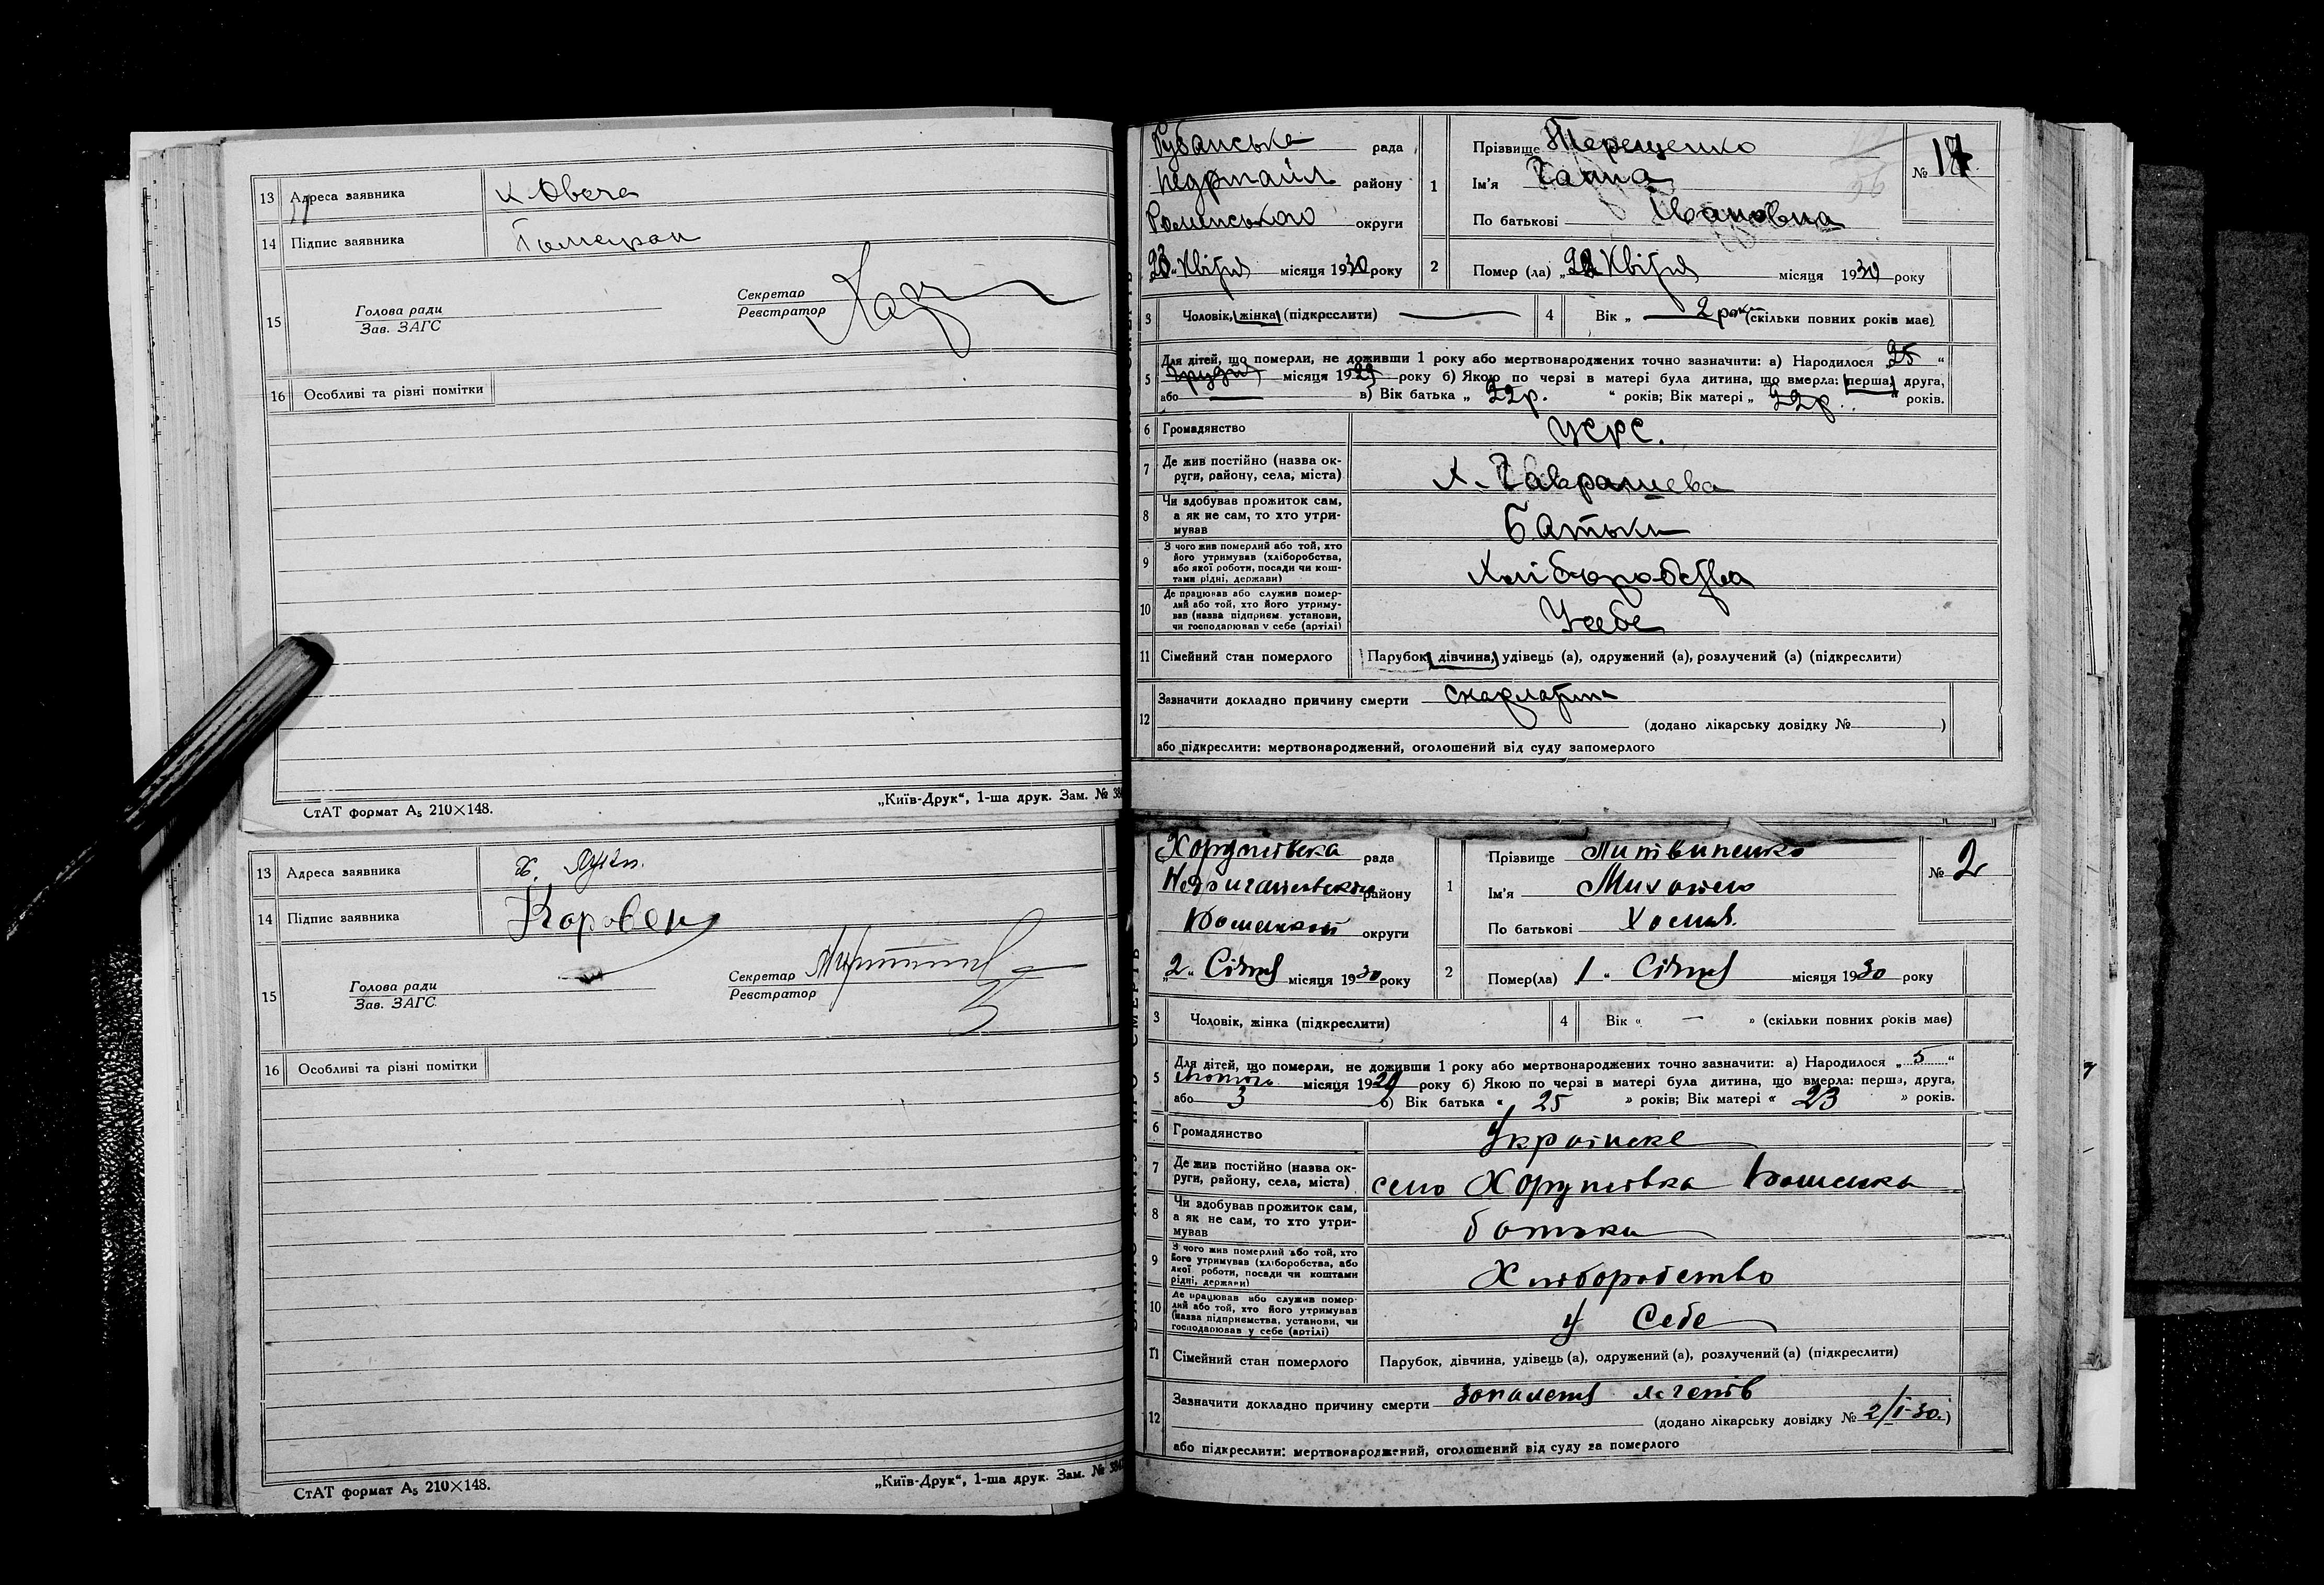 13 Адреса заявника х. Овеча
14 Підпис заявника
15 Голова ради
Зав. ЗАГС
Секретар
Реєстратор
16 Особливі та різні помітки
СтАТ формат А5 210×148.
„Київ-Друк“, 1-ша друк. Зам. №
Рубанська рада
району
Роменського округи
23 Квітня місяця 1930 року
1 Прізвище Терещенко
Ім'я Ганна
По батькові Івановна
№ 17
2 Помер (ла) „22 Квітня місяця 1930 року
3 Чоловік, жінка (підкреслити)
4 Вік „ 2 роки (скільки повних років має)
5 Для дітей, що померли, не доживши 1 року або мертвонароджених точно зазначити: а) Народилося 25 “
грудня місяця 1929 року б) Якою по черзі в матері була дитина, що вмерла: перша, друга,
або в) Вік батька „ 22р. “ років; Вік матері „ 22р. “ років.
6 Громадянство УСРС.
7 Де жив постійно (назва ок-
руги, району, села, міста) х. Гаврашева
8 Чи здобував прожиток сам,
а як не сам, то хто утри-
мував
Батьки
9 З чого жив померлий або той, хто
його утримував (хліборобства,
або якої роботи, посади чи кош-
тами рідні, держави)
Хліборобства
10 Де працював або служив помер-
лий або той, хто його утриму-
вав (назва підприєм. установи,
чи господарював у себе (артілі)
У себе
11 Сімейний стан померлого Парубок, дівчина, удівець (а), одружений (а), розлучений (а) (підкреслити)
12 Зазначити докладно причину смерти скарлатина
(додано лікарську довідку № )
або підкреслити: мертвонароджений, оголошений від суду запомерлого
13 Адреса заявника х.
14 Підпис заявника
15 Голова ради
Зав. ЗАГС
Секретар
Реєстратор
16 Особливі та різні помітки
СтАТ формат А5 210×148.
„Київ-Друк“, 1-ша друк. Зам. №
Хоружівска рада
району
округи
„2“ Січня місяця 1930 року
1 Прізвище Литвиненко
Ім'я Михайло
По батькові Хомив.
№ 2
2 Помер(ла) 1 „ Січня місяця 1930 року
3 Чоловік, жінка (підкреслити)
4 Вік « — » (скільки повних років має)
5 Для дітей, що померли, не доживши 1 року або мертвонароджених точно зазначити: а) Народилося „ 5 “
лютого місяця 1929 року б) Якою по черзі в матері була дитина, що вмерла: перша, друга,
або 3 б) Вік батька « 25 » років; Вік матері « 23 » років.
6 Громадянство Українске
7 Де жив постійно (назва ок-
руги, району, села, міста) село Хоружівка
8 Чи здобував прожиток сам,
а як не сам, то хто утри-
мував
батьки
9 З чого жив померлий або той, хто
його утримував (хліборобства, або
якої роботи, посади чи коштами
рідні, держави)
Хлиборобство
10 Де працював або служив помер-
лий або той, хто його утримував
(назва підприємства, установи, чи
господарював у себе (артілі)
у Себе
11 Сімейний стан померлого Парубок, дівчина, удівець (а), одружений (а), розлучений (а) (підкреслити)
12 Зазначити докладно причину смерти запалення легенів
(додано лікарську довідку № 2/I-30.)
або підкреслити: мертвонароджений, оголошений від суду за померлого